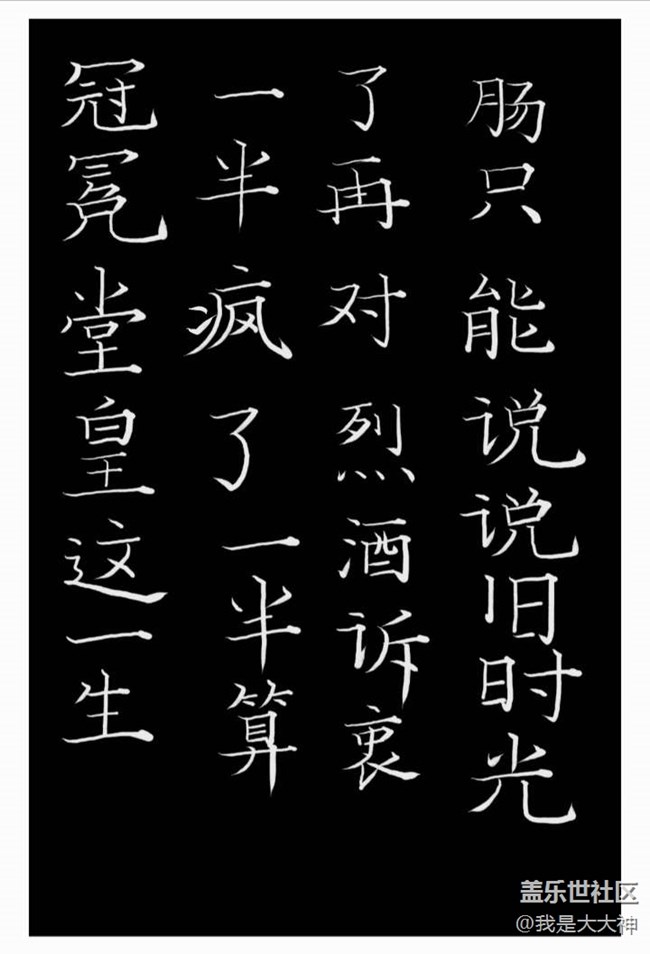 冠冕堂皇这一生
一半疯了一半算
了再对烈酒诉衷
肠只能说说旧时光
盖乐世社区
@我是大大神